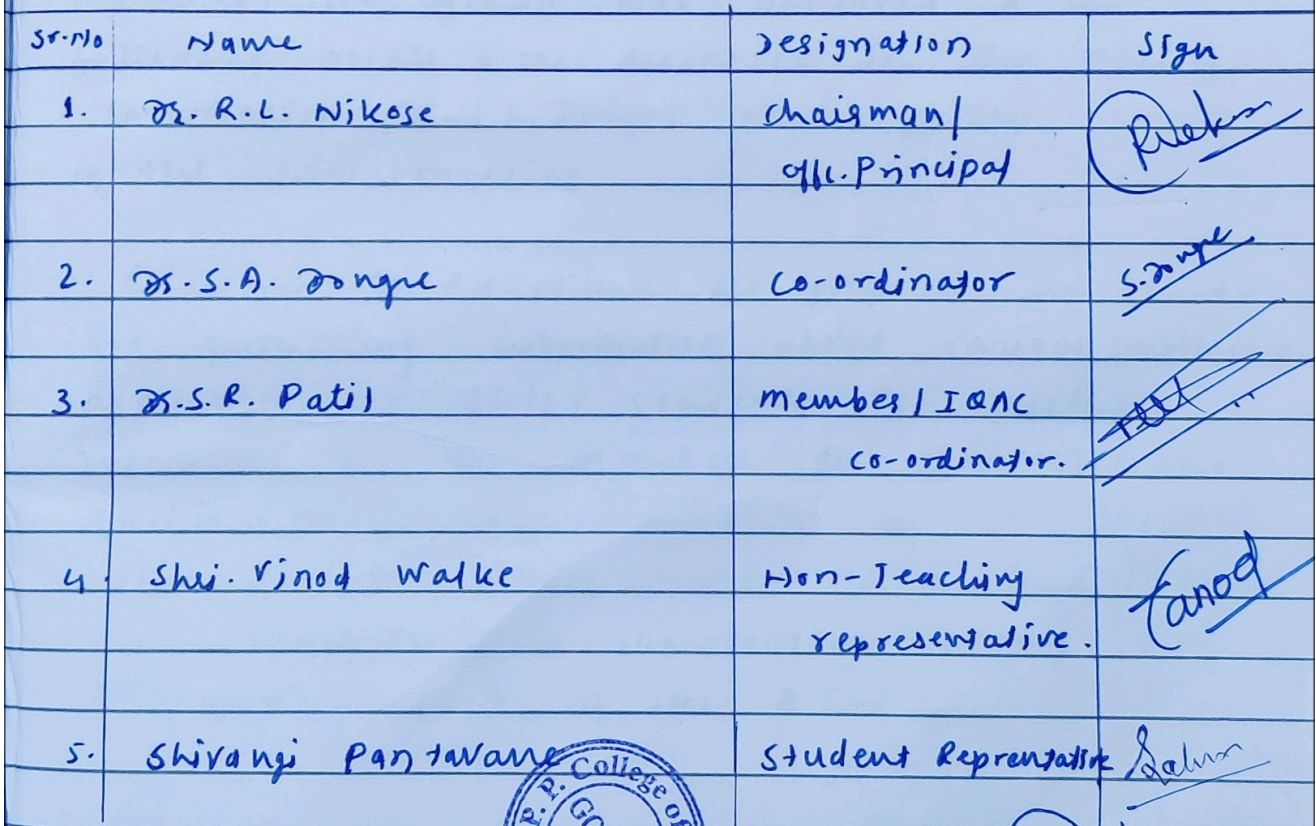 Sr.No Name Designation Sign
1. Dr. R.L. Nikose Chairman/
offc. Principal
2. Dr. S.A. Dongre Co-ordinator S.Dongre
3. Dr. S.R. Patil Member / IQAC
Co-ordinator.
4. Shri. Vinod Walke Non-Teaching
representative.
5. Shivangi Pantavane Student Reprentative
P. P. College of